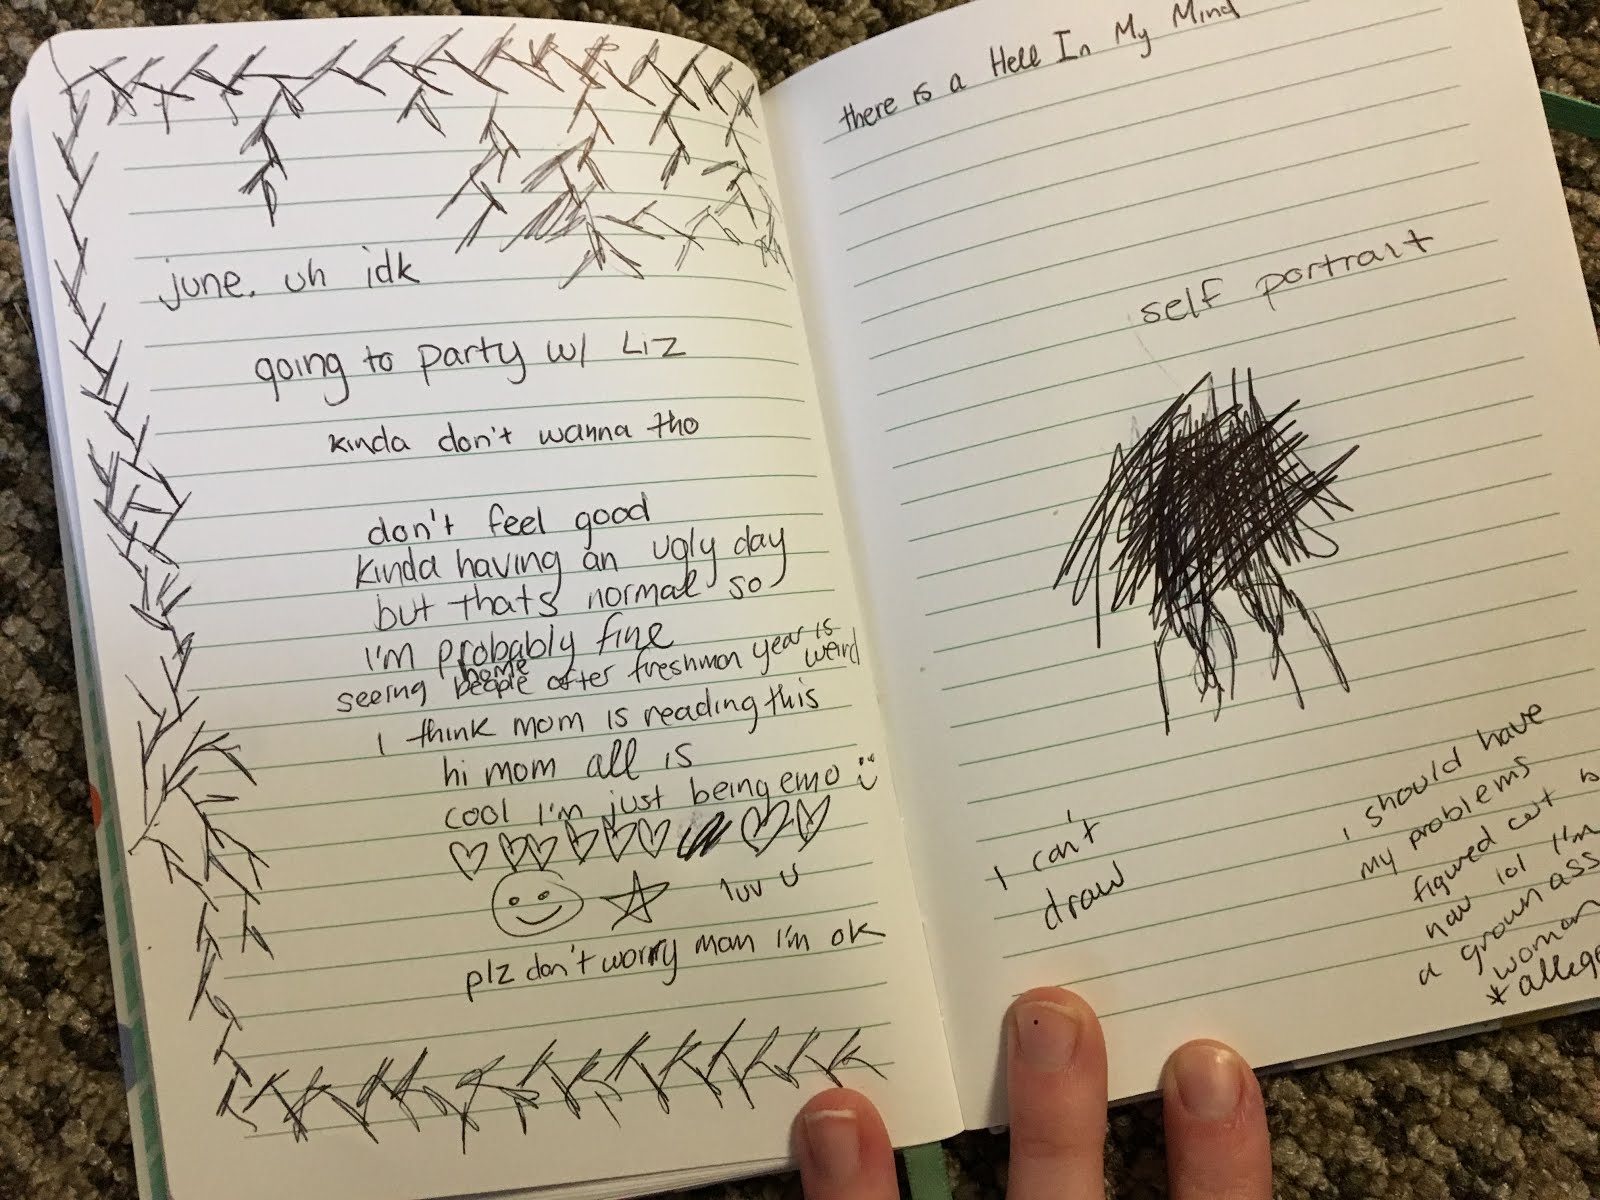 june. uh idk
going to party w/ Liz
kinda don't wanna tho
don't feel good
kinda having an ugly day
but thats normal so
I'm probably fine
seeing home people after freshman year is weird
I think mom is reading this
hi mom all is
cool I'm just being emo
luv u
plz don't worry mom I'm ok
there is a Hell In My Mind
self portrait
I can't
draw
I should have
my problems
figured out b
now lol I'm
a grown ass
woman
*alleg